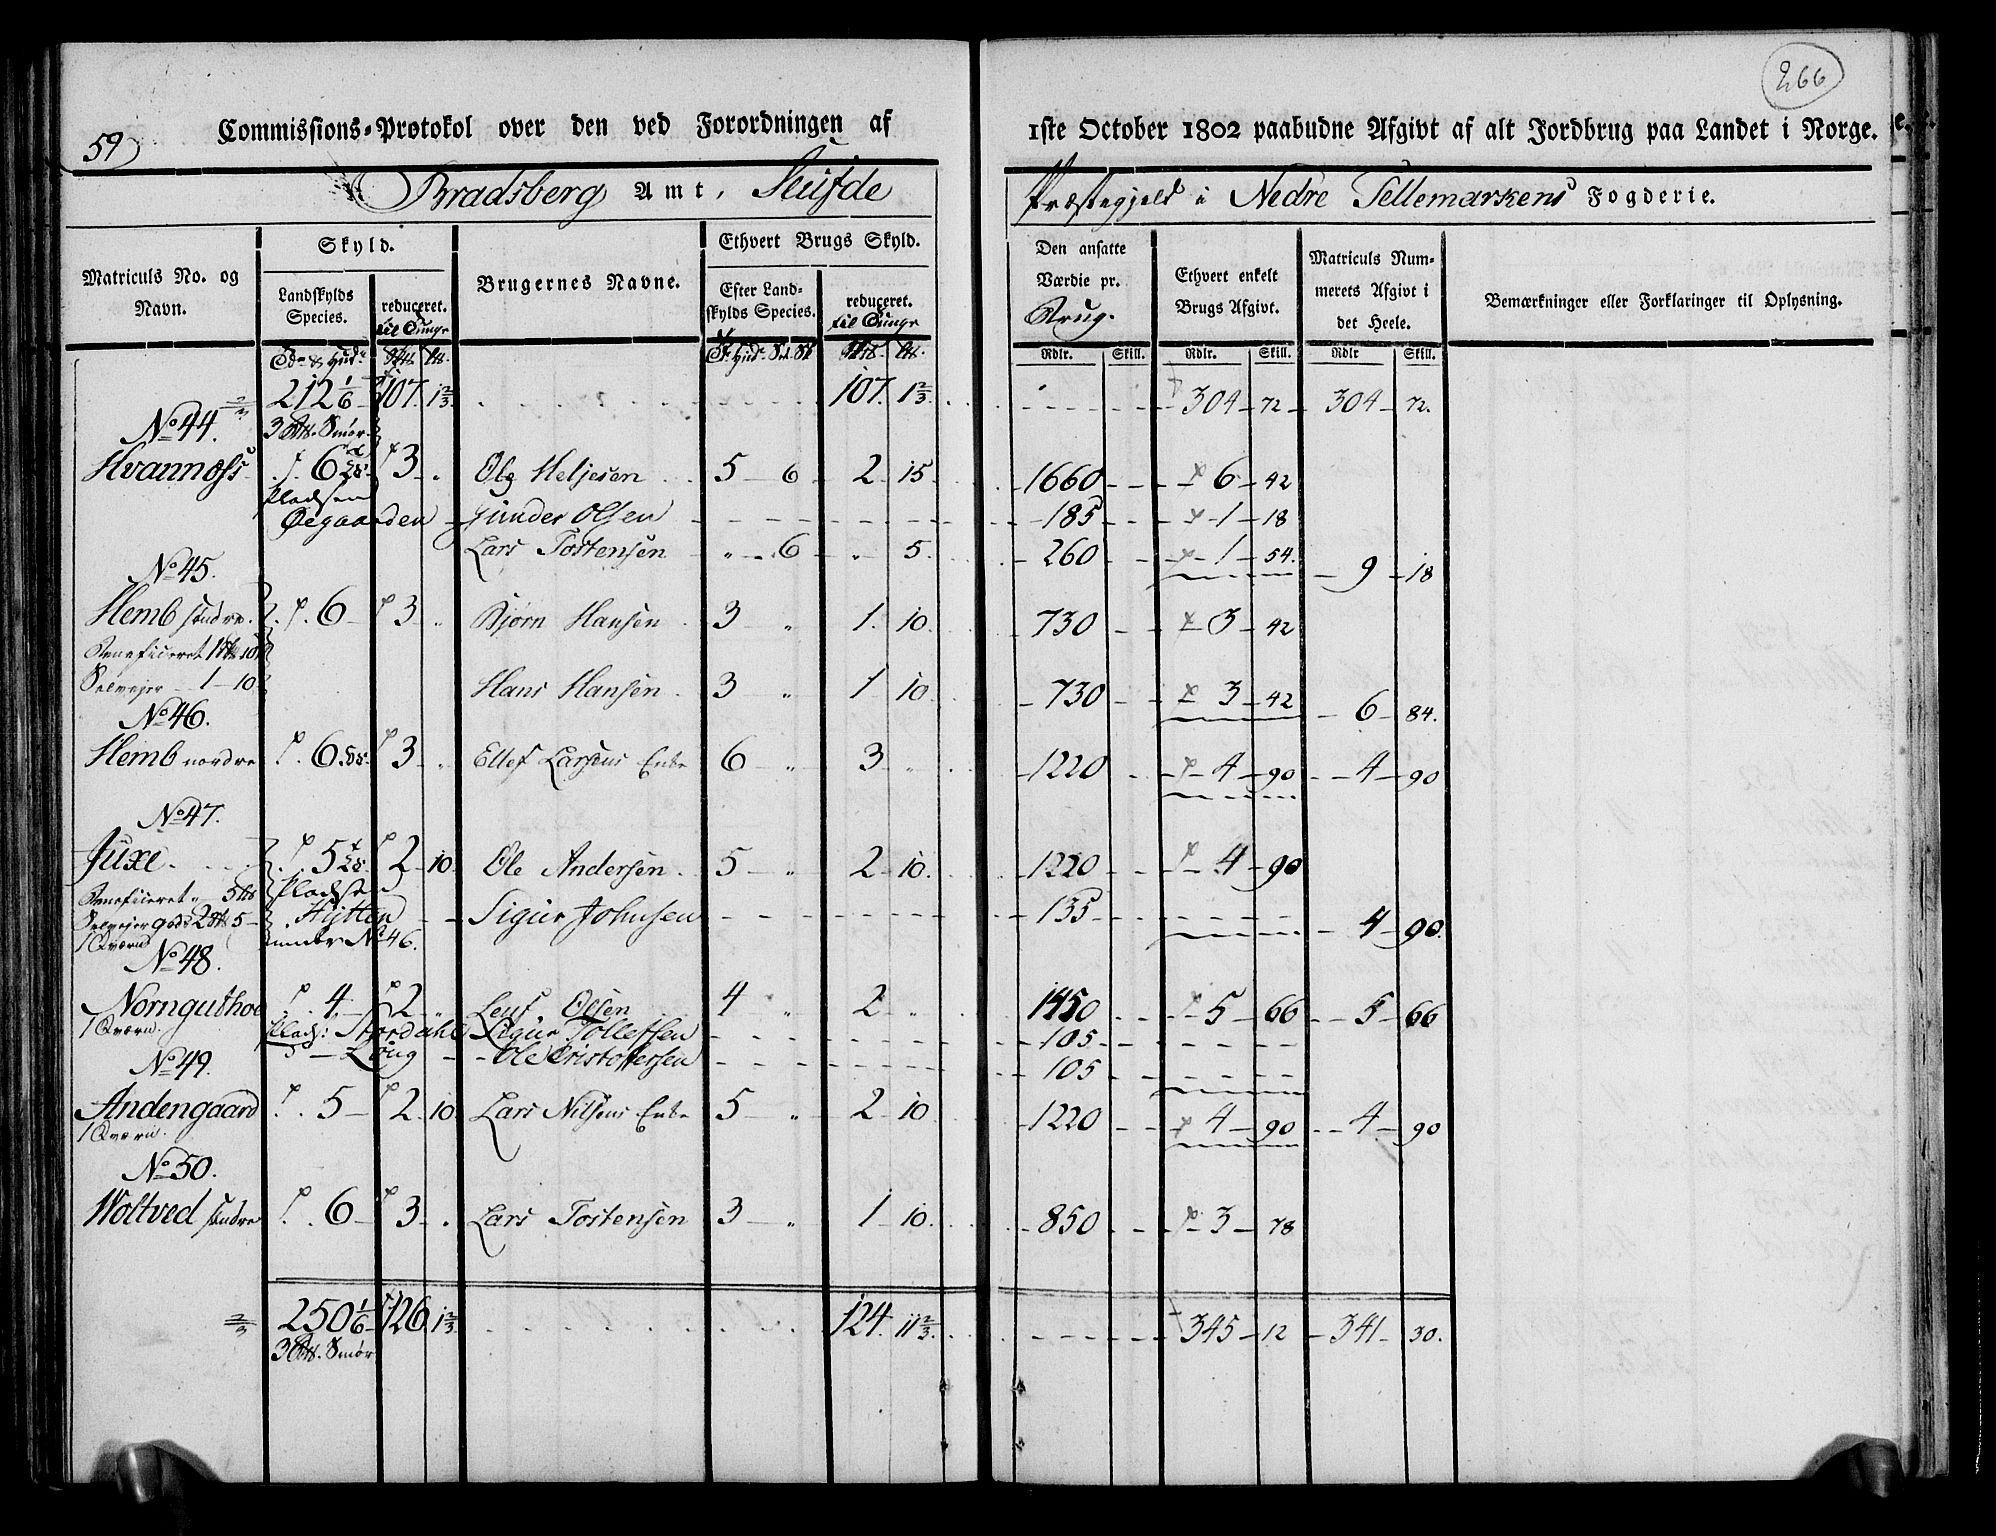 266
59
Commissions-Protokol over den ved Forordningen af 1ste October 1802 paabudne Afgivt af alt Jordbrug paa Landet i Norge.
Bradsberg Amt, Præstegjeld i Nedre Tellemarkens Fogderie.
Matriculs No. og Navn.
Skyld.
Landskylds Species.
reduceret. til Tunge
Brugernes Navne.
Ethvert Brugs Skyld.
Efter Landskylds Species.
reduceret. til Tunge
Den ansatte Værdie pr. Brug.
Ethvert enkelt Brugs Afgivt.
Matriculs Nummerets Afgivt i det Heele.
Bemærkninger eller Forklaringer til Oplysning.
Rdlr. Skill. Rdlr. Skill. Rdlr Skill.
212 1/6 107. 1 2/3. 107. 1 2/3. 304 72 304 72.
3 Smør.
No 44.
Hvannofs 6 3 Ole Heljesen 5 6 2 15 1660 6 42
Pladsen
Øegaarden Gunder Olsen 185 1 18
Lars Tostensen 6 5. 260 1 54. 9 18
No 45.
Hemb søndre. 6 3 Bjørn Hansen 3 1. 10. 730 3 42
Beneficeret 1 10
Selvejer 1 10 Hans Hansen 3 1 10 730 3 42 6 84.
No 46.
Hemb nordre 6 3 Ellef Larsens Enke 6 3 1220 4 90 4 90
No 47.
Juxe 5 2 10 Ole Andersen 5 2 10. 1220 4 90
Beneficeret 5 Pladsen
Selvejer gods 2 5 Hytten Sigur Johnsen 135 4 90.
1 Qværn under No 46.
No 48.
Nornguthoe 4 2 Leuf Olsen 4 2 1450 5 66 5 66
1 Qværn. Plads: Stordahl Sigur Tollefsen 105
Loug Ole Cristoffersen 105
No 49.
Andengaard 5 2 10 Lars Nilsens Enke 5 2 10 1220 4 90 4 90
1 Qværn.
No 50.
Woltved søndre 6 3 Lars Tostensen 3 1 10. 850 3 78
250 1/6 126. 1 2/3. 124. 11 2/3. 345 12 341 30.
3 Smør